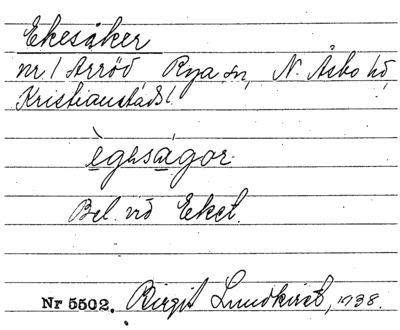 Ekesåker
nr 1 Arröd, Rya sn, N. Åsbo hd,
Kristianstads l.
ègəságor.
Bel. vid Eket.
Nr 5502. Birgit Lundkvist, 1938.